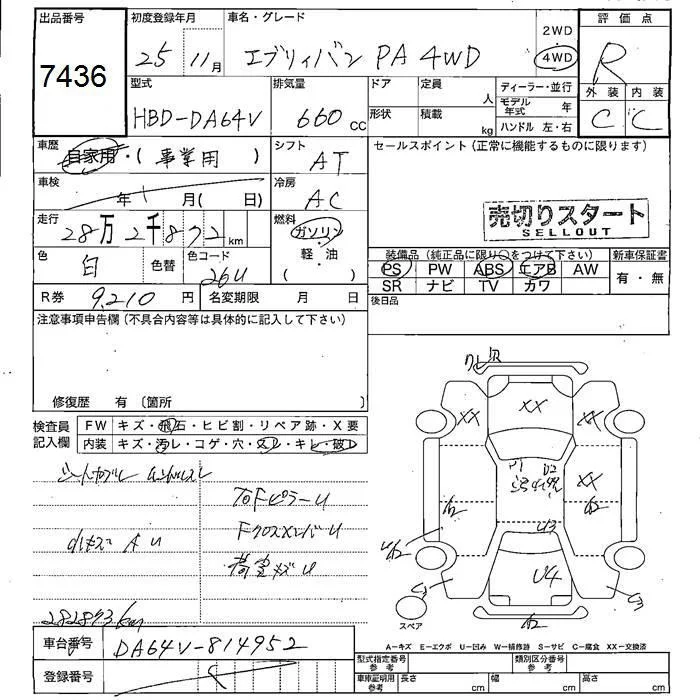 出品番号
7436
初度登録年月
25 11月
車名・グレード
エブリィバン PA 4WD
2WD
4WD
評価点
R
外装 内装
C C
型式
HBD-DA64V
排気量
660 cc
ドア
定員
人
形状
積載
kg
ディーラー・並行
モデル年式 年
ハンドル 左・右
車歴
自家用・(事業用)
シフト
AT
セールスポイント (正常に機能するものに限ります)
車検
年 月( 日)
冷房
AC
売切りスタート
SELLOUT
走行
28万2千872km
燃料
ガソリン
軽・油
( )
色
白
色替
色コード
26U
装備品 (純正品に限り○をつけて下さい)
新車保証書
PS PW ABS エアB AW
SR ナビ TV カワ
有・無
R券 9,210 円
名変期限 月 日
後日品
注意事項申告欄 (不具合内容等は具体的に記入して下さい)
修復歴 有 〔箇所 〕
検査員記入欄
FW キズ・飛石・ヒビ割・リペア跡・X要
内装 キズ・汚レ・コゲ・穴・スレ・キレ・破レ
AU
荷室メガU
282873km
XX
XX
XX
U2
U3
U4
スペア
A-キズ E-エクボ U-凹み W-補修跡 S-サビ C-腐食 XX-交換済
車台番号 DA64V-814952
登録番号
型式指定番号 参考
類別区分番号 参考
車庫証明用 参考
長さ cm
幅 cm
高さ cm